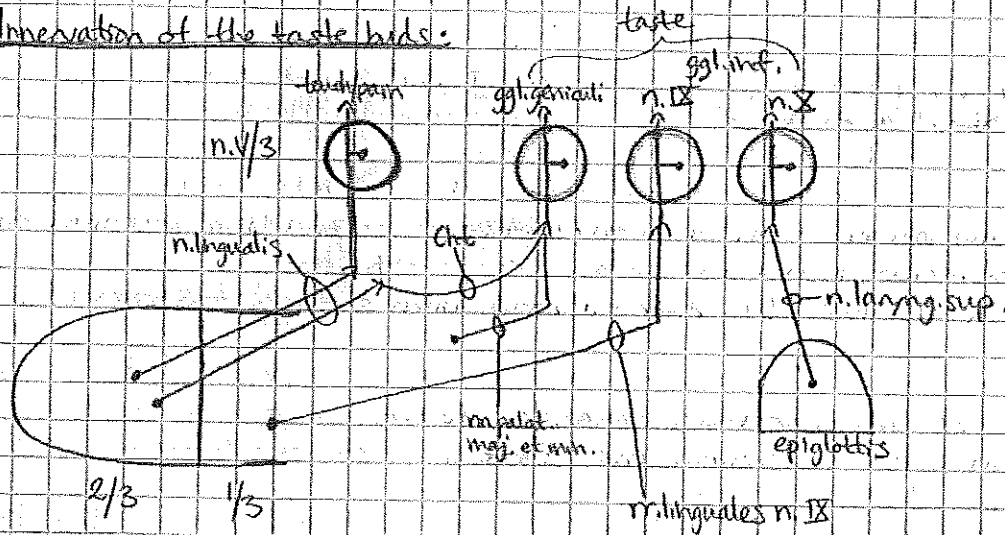 Innervation of the taste buds:
taste
touch/pain
ggl.geniculi
ggl.inf.
n.IX
n.X
n.V/3
n.lingualis
Cht
n.laryng.sup.
nn.palat.
maj. et min.
epiglottis
2/3
1/3
rr.linguales n.IX